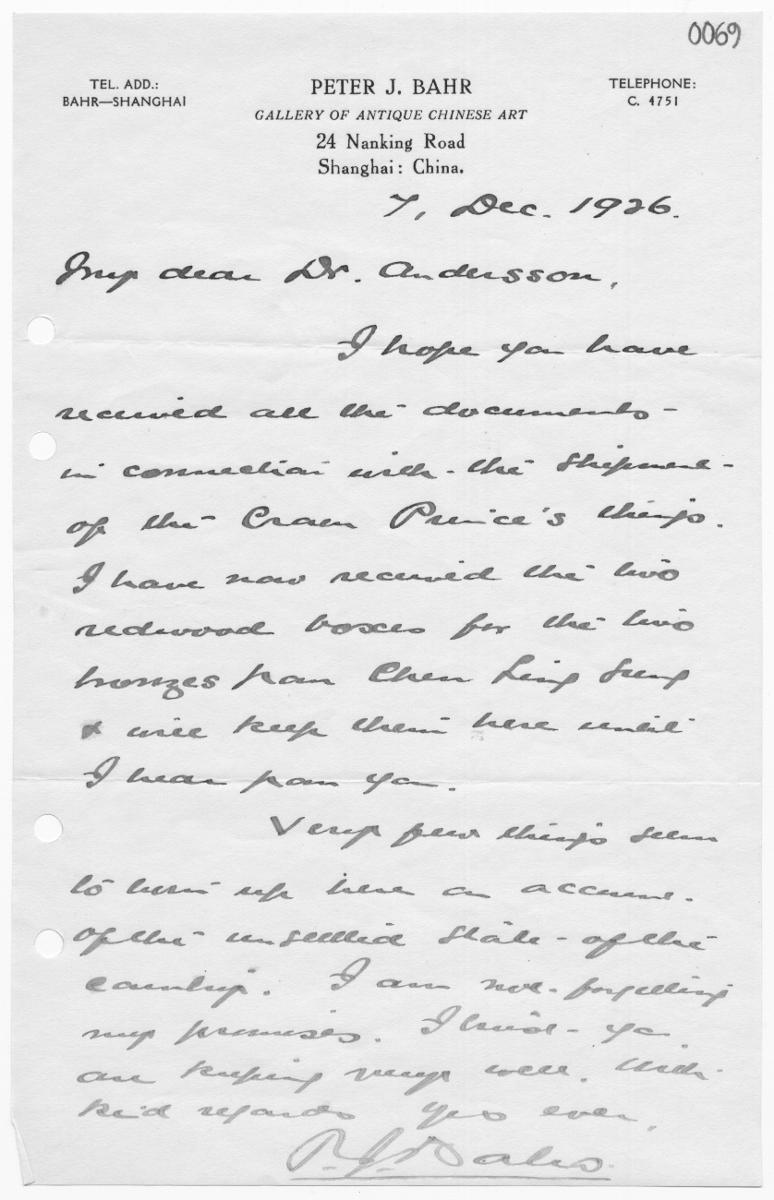 0069
TEL. ADD.:
BAHR—SHANGHAI
PETER J. BAHR
GALLERY OF ANTIQUE CHINESE ART
24 Nanking Road
Shanghai: China.
TELEPHONE:
C. 4751
7, Dec. 1926.
My dear Dr. Andersson,
I hope you have
received all the documents
in connection with the shipment
of the Crown Prince's things.
I have now received the two
redwood boxes for the two
bronzes from Chen Ling Sung
& will keep them here until
I hear from you.
Very few things seem
to turn up here on account
of the unsettled state of the
country. I am not forgetting
my promises. I trust you
are keeping very well. With
kind regards Yrs ever,
P. J. Bahr.